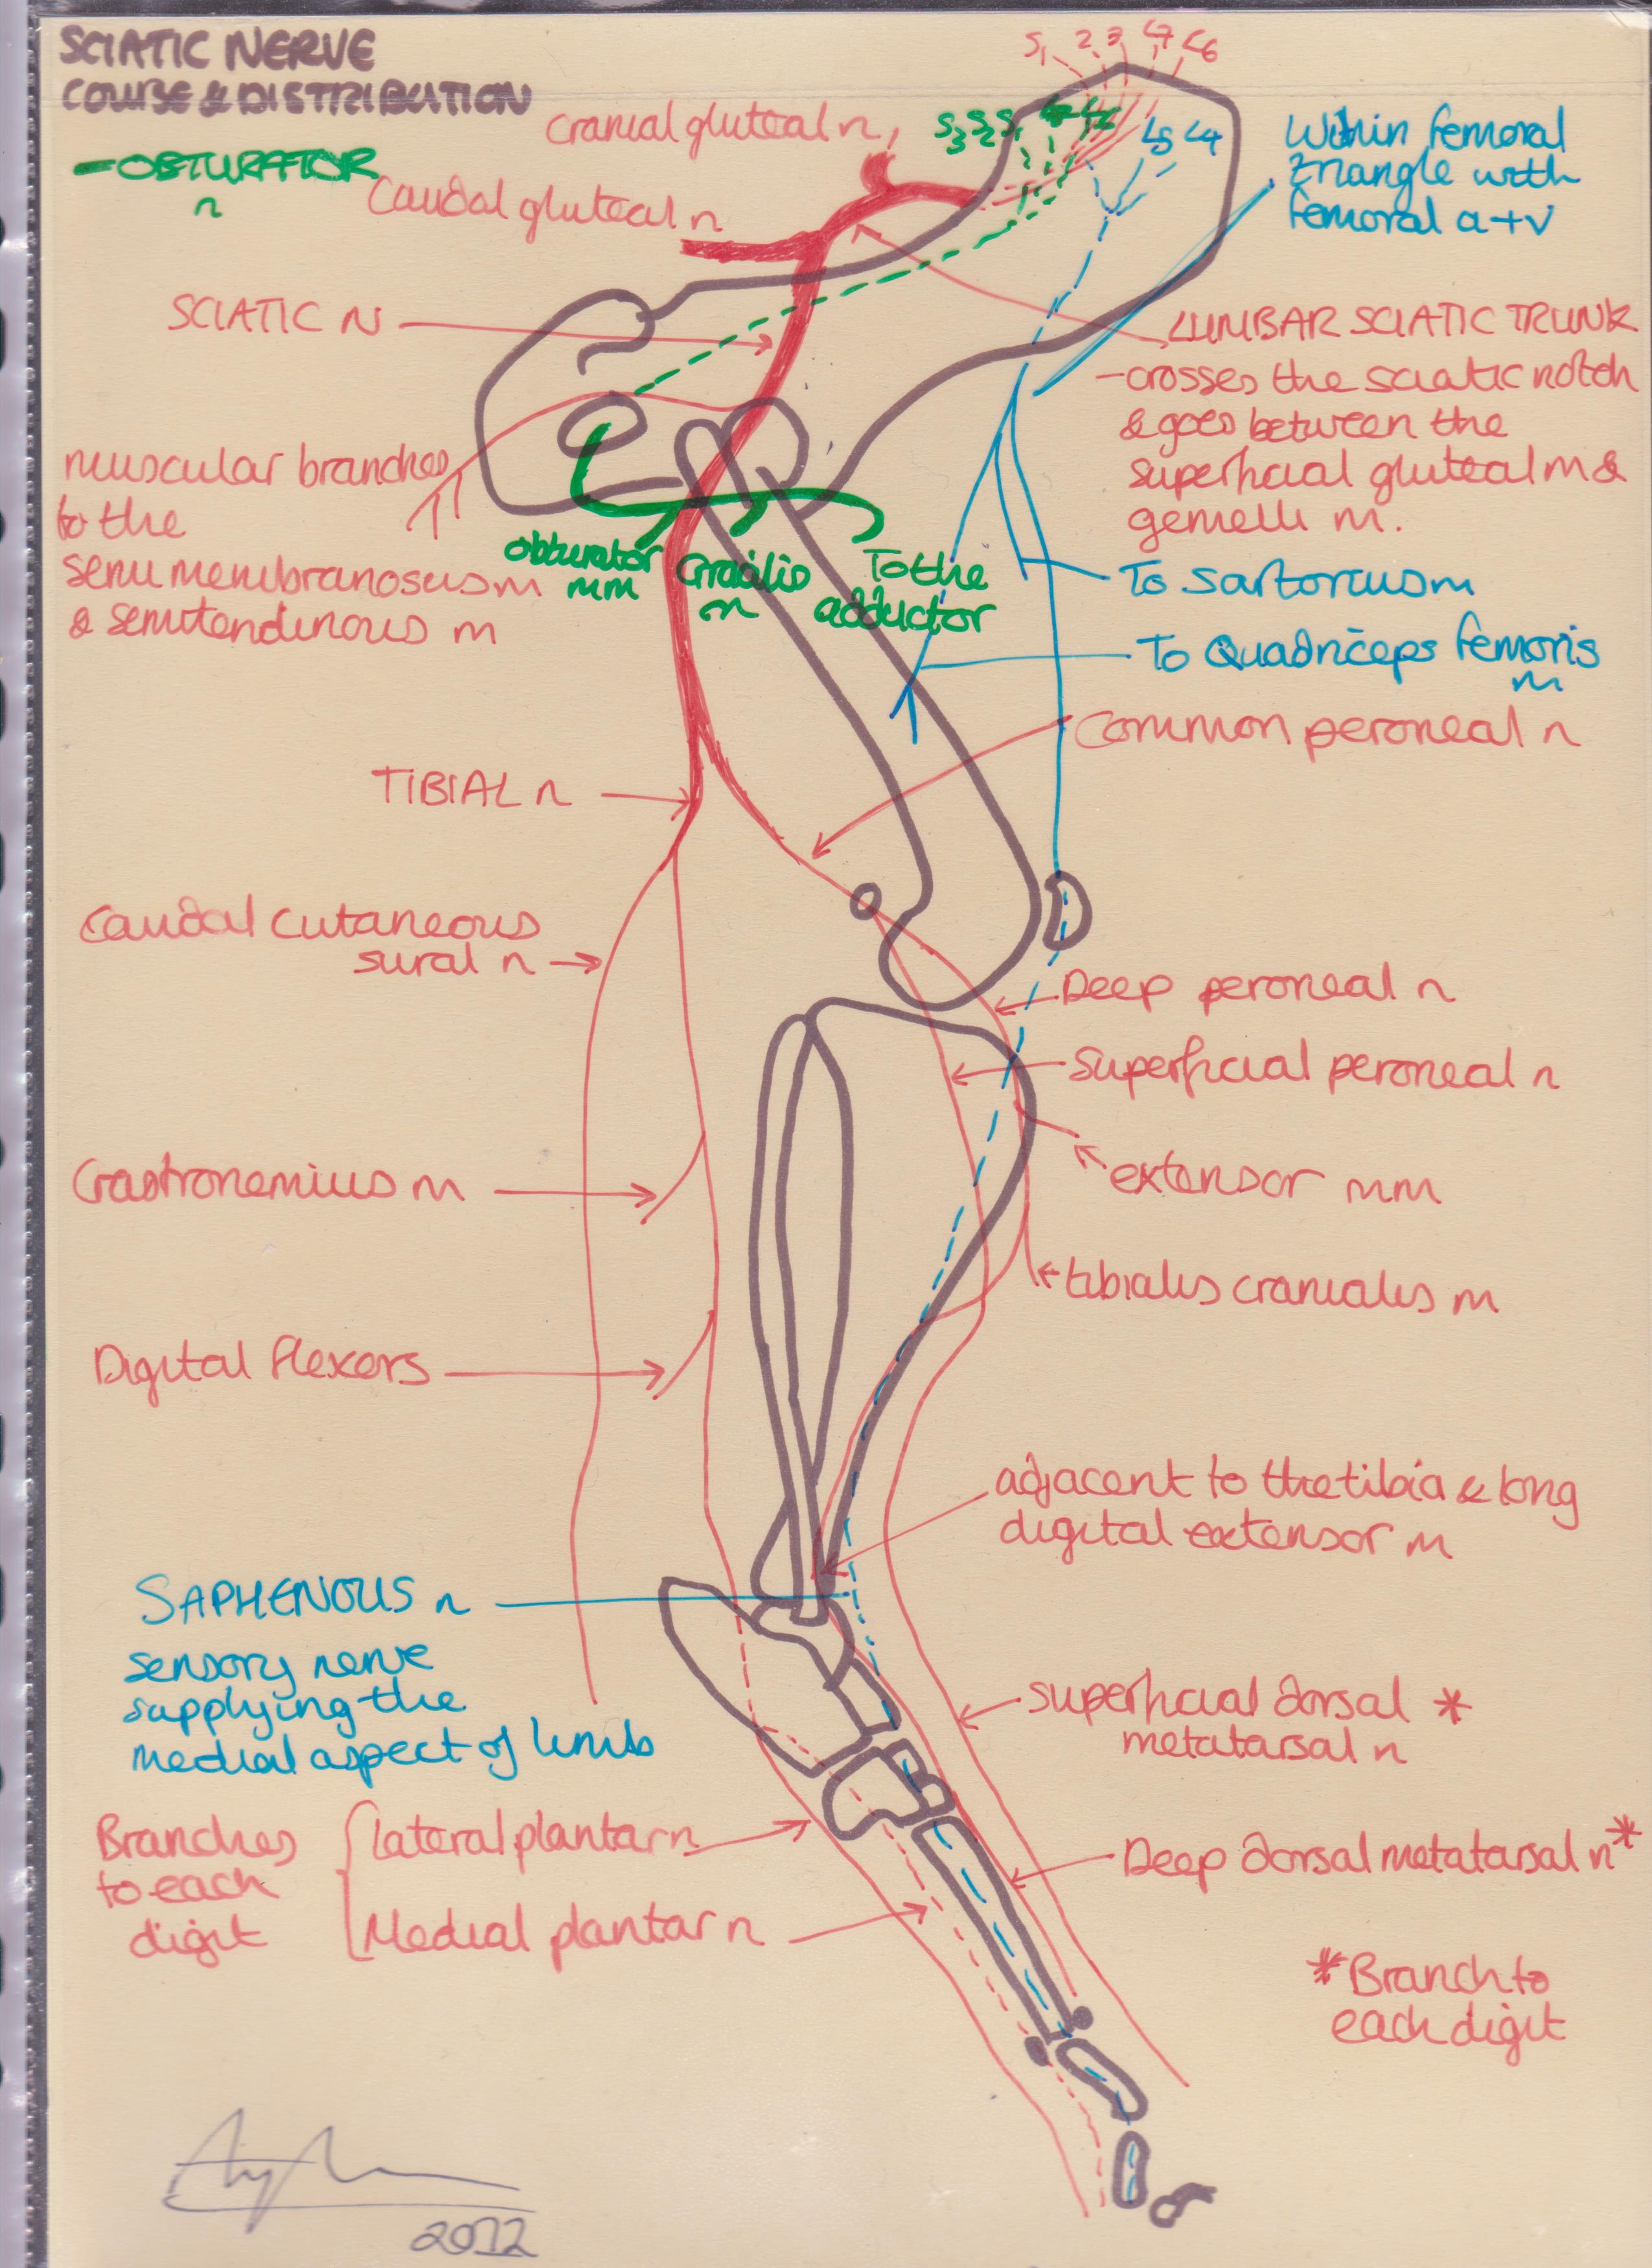 SCIATIC NERVE
COURSE & DISTRIBUTION
- OBTURATOR
n
S1 2 3 L7 L6
Cranial gluteal n,
S3 S2 S1 L6
L5 L4
Within femoral
triangle with
femoral a+v
Caudal gluteal n
SCIATIC N
LUMBAR SCIATIC TRUNK
- crosses the sciatic notch
& goes between the
superficial gluteal m &
gemelli m.
muscular branches
to the
semimembranosus m
& semitendinous m
obturator
mm
Gracilis
m
To the
adductor
To sartorius m
To Quadriceps femoris
m
Common peroneal n
TIBIAL n
Caudal cutaneous
sural n
Deep peroneal n
Superficial peroneal n
extensor mm
Gastronemius m
tibialis cranialis m
Digital flexors
adjacent to the tibia & long
digital extensor m
SAPHENOUS n
sensory nerve
supplying the
medial aspect of limb
superficial dorsal *
metatarsal n
Branches
to each
digit
lateral plantar n
Medial plantar n
Deep dorsal metatarsal n*
*Branch to
each digit
2012